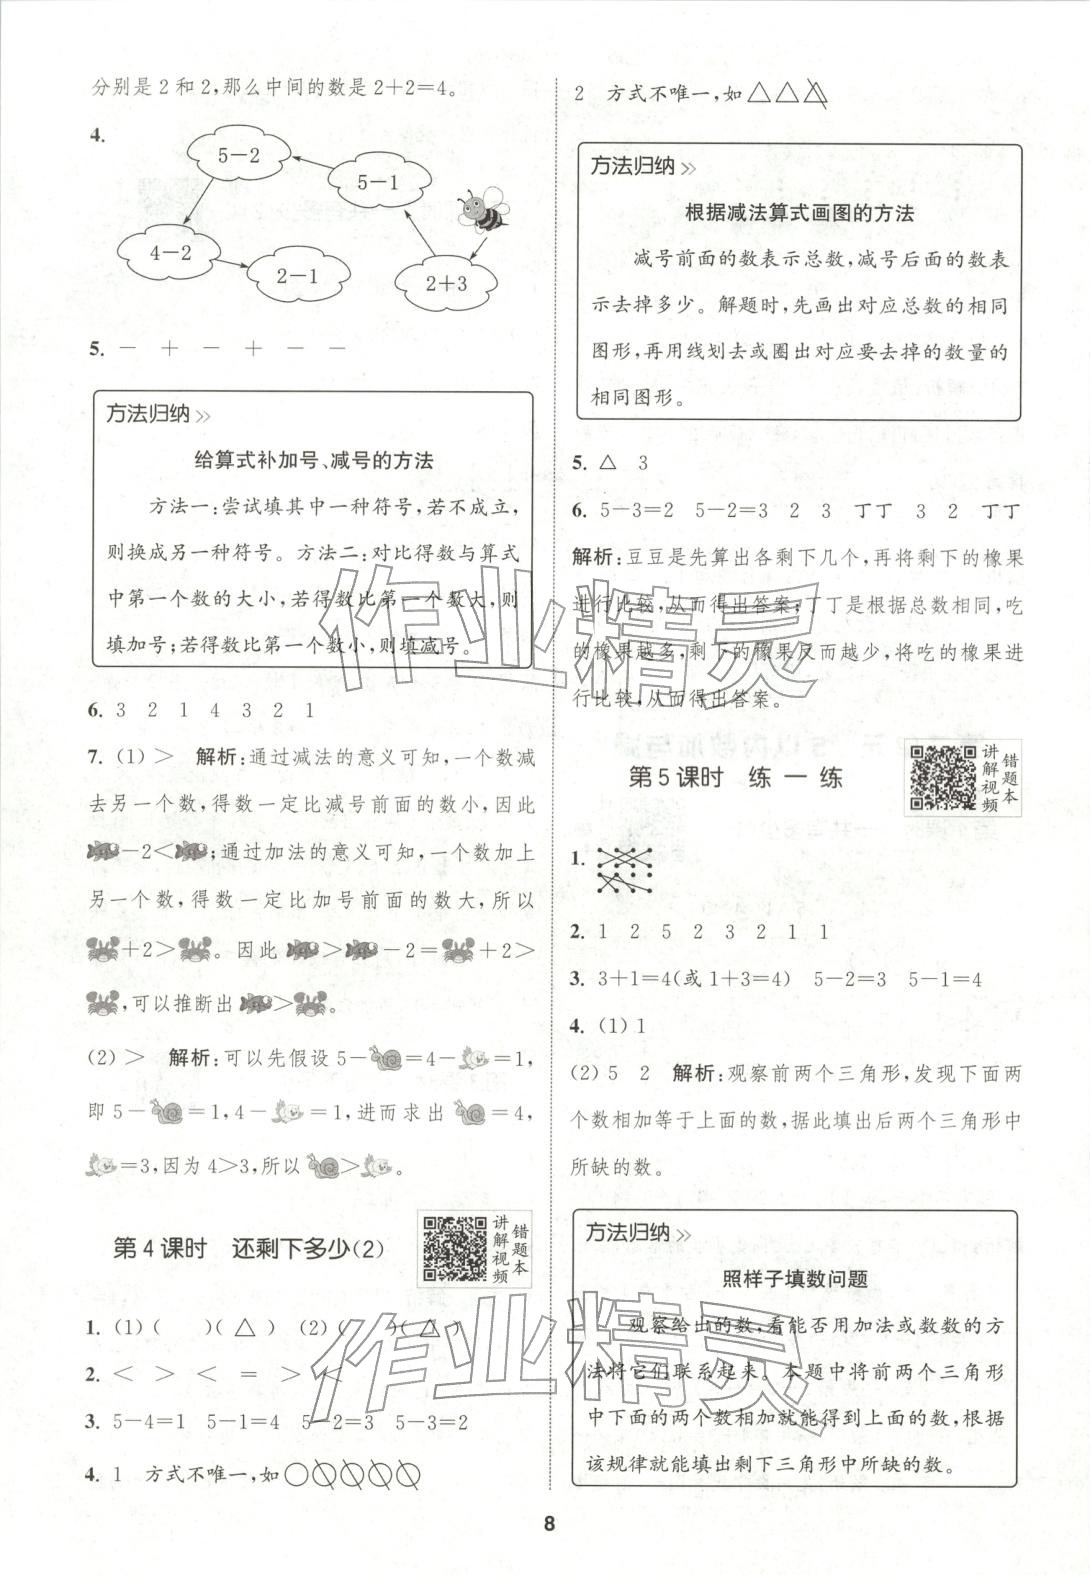 分别是2和2,那么中间的数是2+2=4。
4.
5-2
5-1
4-2
2-1
2+3
5. - + - + - -
方法归纳>>
给算式补加号、减号的方法
方法一:尝试填其中一种符号,若不成立,
则换成另一种符号。方法二:对比得数与算式
中第一个数的大小,若得数比第一个数大,则
填加号;若得数比第一个数小,则填减号。
6. 3 2 1 4 3 2 1
7. (1) > 解析:通过减法的意义可知,一个数减
去另一个数,得数一定比减号前面的数小,因此
-2<;通过加法的意义可知,一个数加上
另一个数,得数一定比加号前面的数大,所以
+2>。因此>-2=+2>
,可以推断出>。
(2) > 解析:可以先假设5-=4-=1,
即5-=1,4-=1,进而求出=4,
=3,因为4>3,所以>。
第4课时 还剩下多少(2)
讲解视频
错题本
1. (1)( )(△) (2)( )(△)
2. < > < = > <
3. 5-4=1 5-1=4 5-2=3 5-3=2
4. 1 方式不唯一,如○○○○○
2 方式不唯一,如△△△
方法归纳>>
根据减法算式画图的方法
减号前面的数表示总数,减号后面的数表
示去掉多少。解题时,先画出对应总数的相同
图形,再用线划去或圈出对应要去掉的数量的
相同图形。
5. △ 3
6. 5-3=2 5-2=3 2 3 丁丁 3 2 丁丁
解析:豆豆是先算出各剩下几个,再将剩下的橡果
进行比较,从而得出答案;丁丁是根据总数相同,吃
的橡果越多,剩下的橡果反而越少,将吃的橡果进
行比较,从而得出答案。
第5课时 练一练
讲解视频
错题本
1.
2. 1 2 5 2 3 2 1 1
3. 3+1=4(或1+3=4) 5-2=3 5-1=4
4. (1) 1
(2) 5 2 解析:观察前两个三角形,发现下面两
个数相加等于上面的数,据此填出后两个三角形中
所缺的数。
方法归纳>>
照样子填数问题
观察给出的数,看能否用加法或数数的方
法将它们联系起来。本题中将前两个三角形
中下面的两个数相加就能得到上面的数,根据
该规律就能填出剩下三角形中所缺的数。
作业精灵
作业精灵
8